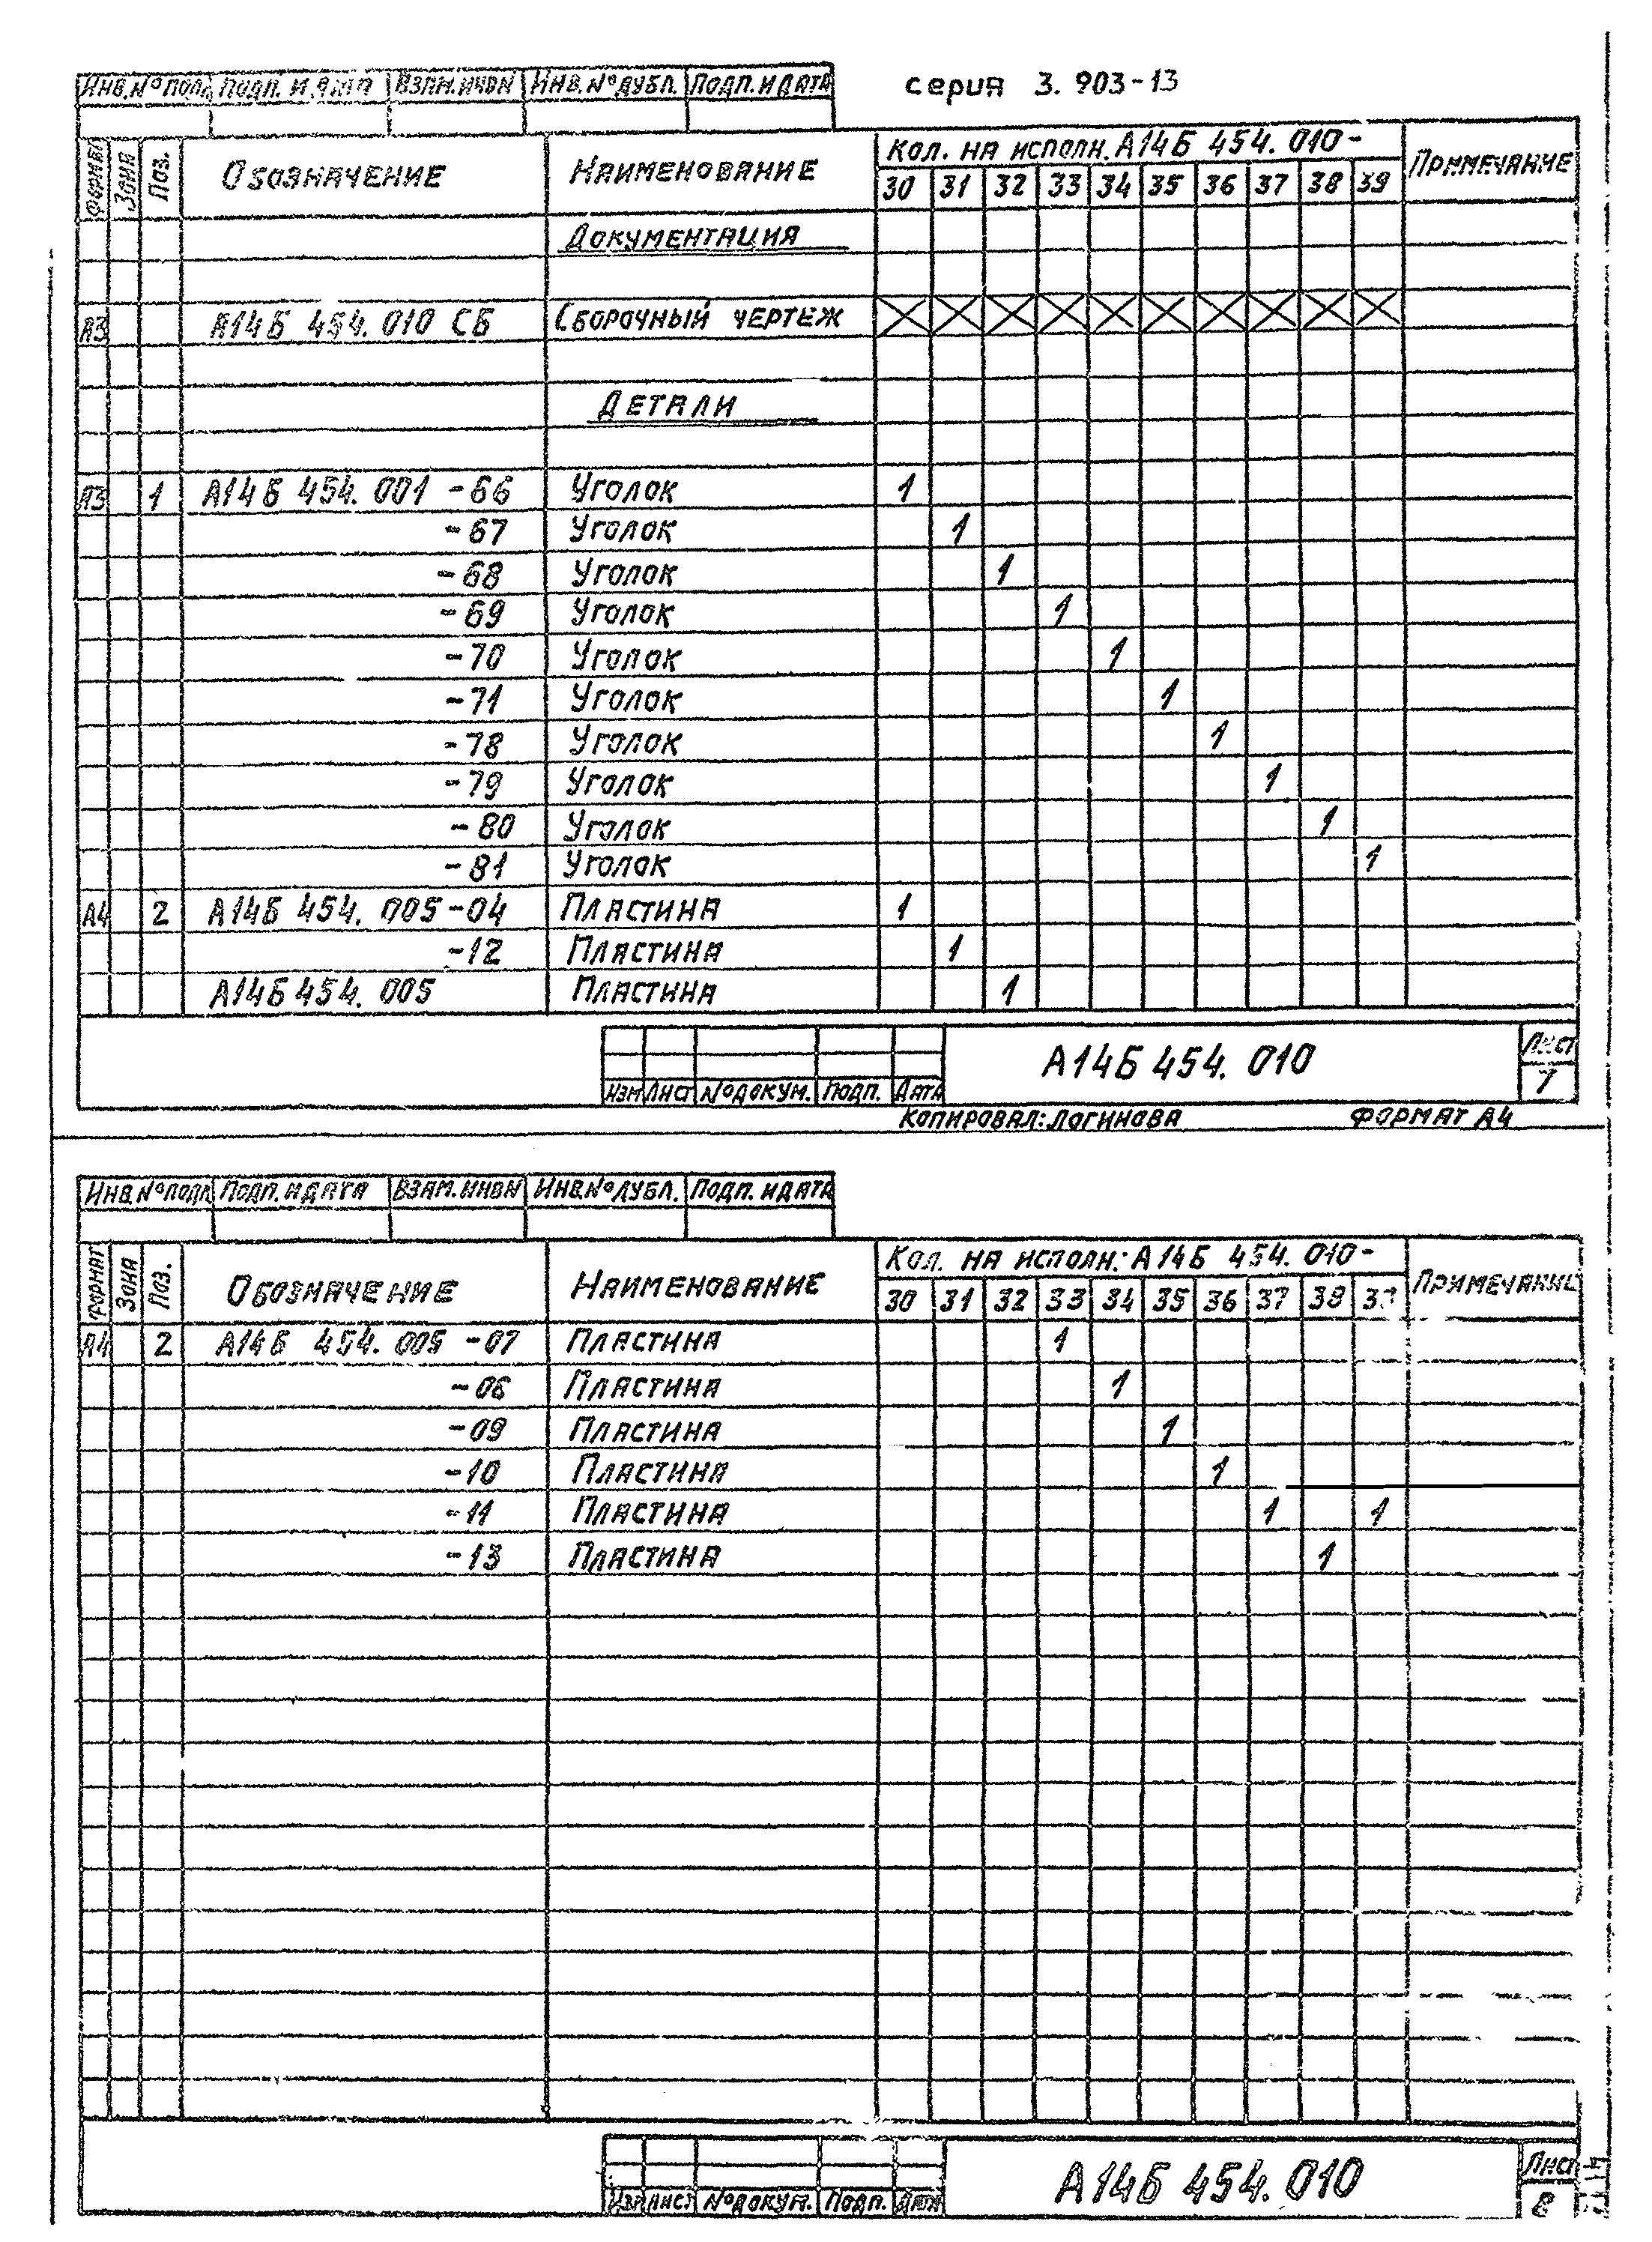 серия 3. 903-13
Инв.№ подл. Подп. и дата Взам.инв№ Инв.№дубл. Подп. и дата
Формат Зона Поз. Обозначение Наименование Кол. на исполн. А14Б 454. 010- Примечание
30 31 32 33 34 35 36 37 38 39
Документация
А3 А14Б 454. 010 СБ Сборочный чертеж
Детали
А3 1 А14Б 454. 001 -66 Уголок 1
-67 Уголок 1
-68 Уголок 1
-69 Уголок 1
-70 Уголок 1
-71 Уголок 1
-78 Уголок 1
-79 Уголок 1
-80 Уголок 1
-81 Уголок 1
А4 2 А14Б 454. 005-04 Пластина 1
-12 Пластина 1
А14Б 454. 005 Пластина 1
А14Б 454. 010 Лист
7
Изм Лист №докум. Подп. Дата
Копировал: Логинова Формат А4
Инв.№подл Подп. и дата Взам.инв№ Инв.№дубл. Подп. и дата
Формат Зона Поз. Обозначение Наименование Кол. на исполн: А14Б 454. 010- Примечание
30 31 32 33 34 35 36 37 38 39
А4 2 А14Б 454. 005 -07 Пластина 1
-06 Пластина 1
-09 Пластина 1
-10 Пластина 1
-11 Пластина 1 1
-13 Пластина 1
А14Б 454. 010 Лист
8
Изм Лист №докум. Подп. Дата